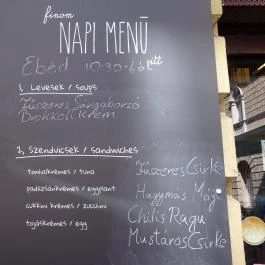 finom
NAPI MENÜ
itt
Ebéd 10:30-16
1, Levesek / soups
Fűszeres Sárgaborsó
Brokkoli krém
2, Szendvicsek / sandwiches
tonhalkrémes / tuna
padlizsánkrémes / eggplant
cukkini krémes / zucchini
tojáskrémes / egg
Fűszeres Csirke
Hagymás Máj
Chilis Ragu
Mustáros Csirke